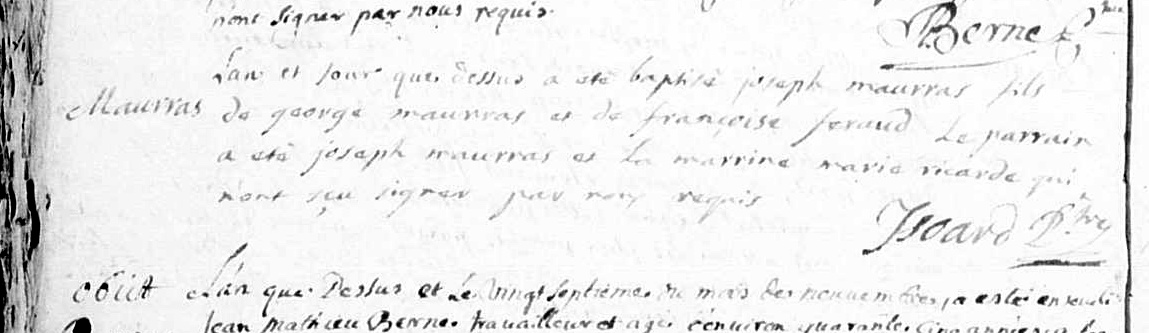 nont signer par nous requis.
Berne
Lan et jour que dessus a eté baptisé joseph maurras fils
Maurras de george maurras et de françoise feraud le parrain
a eté joseph maurras et la marrine marie ricarde qui
n'ont sçu signer par nous requis
Isoard Ptre
obiit Lan que Dessus et Le vingt septieme du mois de nouvembre, a esté enseveli
Jean Mathieu Berne travailleur et agé denviron quarante cinq